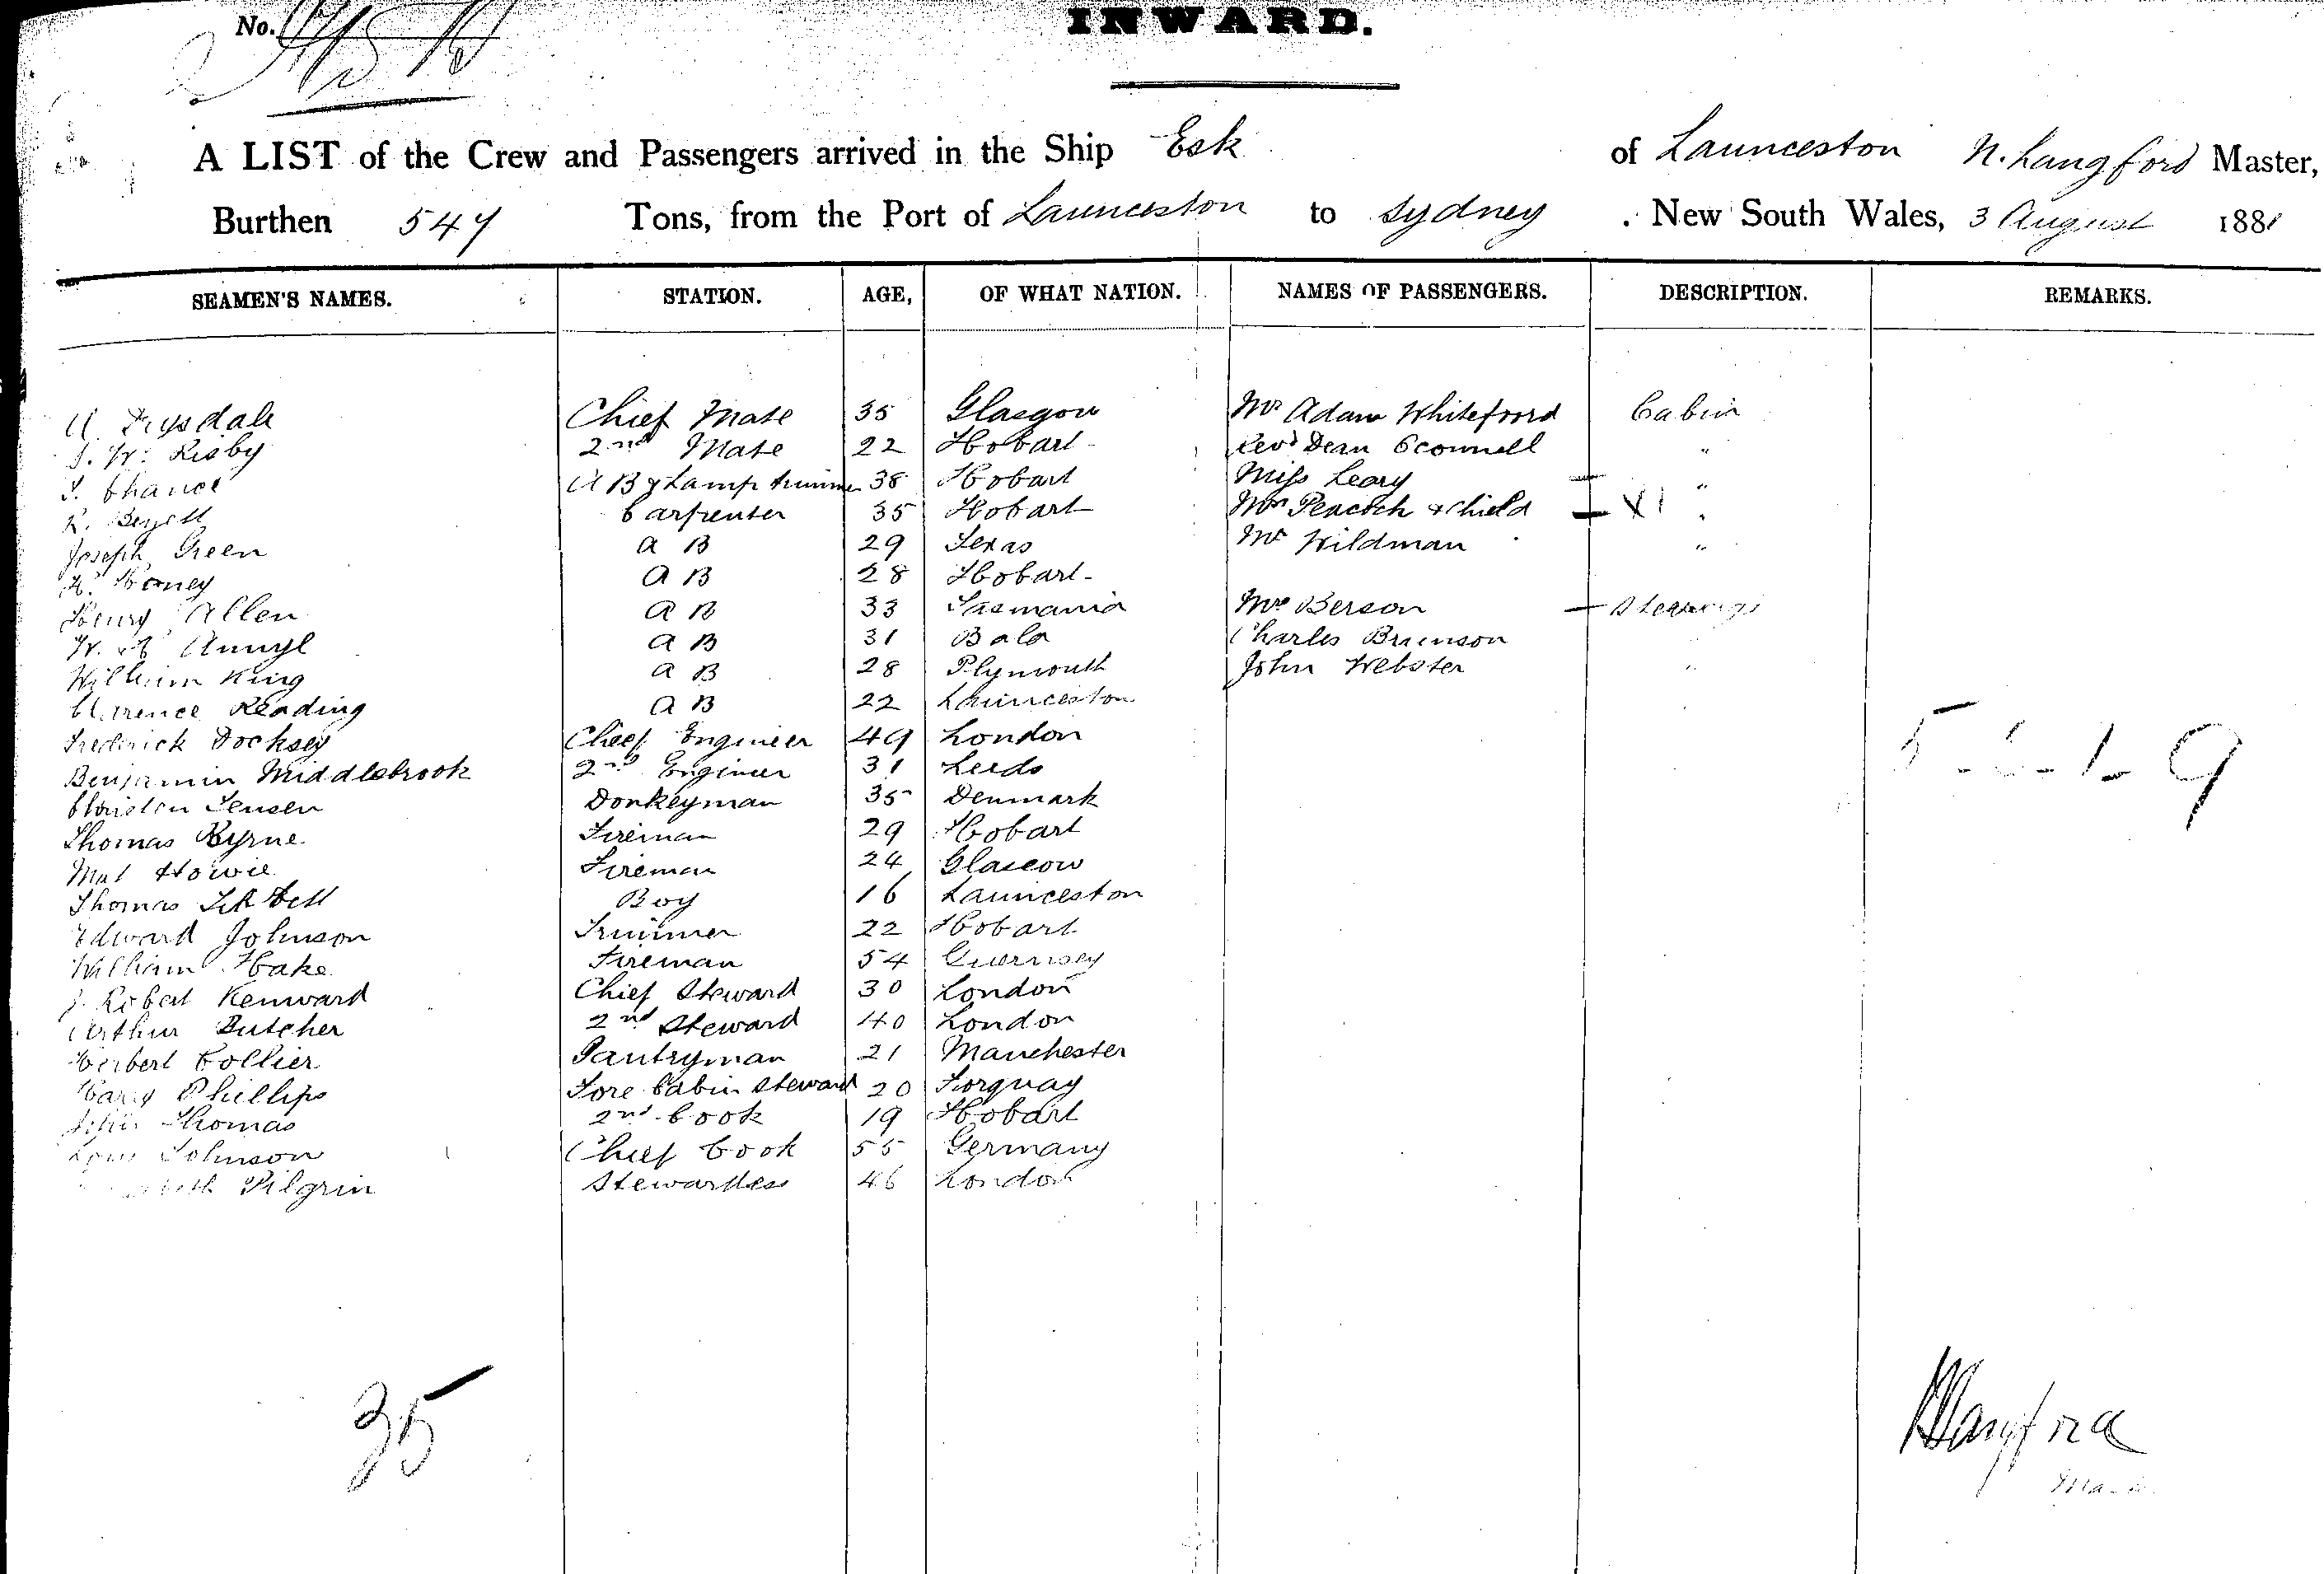 No.
INWARD.
A LIST of the Crew and Passengers arrived in the Ship Esk of Launceston N. Langford Master,
Burthen 547 Tons, from the Port of Launceston to Sydney . New South Wales, 3 August 1881
SEAMEN'S NAMES. STATION. AGE, OF WHAT NATION. NAMES OF PASSENGERS. DESCRIPTION. REMARKS.
Chief Mate 35 Glasgow Mr Adam Whitefoord Cabin
Risby 2nd Mate 22 Hobart Revd Dean Oconnell "
Chance A B & Lamp trimmer 38 Hobart Miss Leary "
Carpenter 35 Hobart Mrs Peacock & Child "
Joseph Green A B 29 Texas Mr Wildman "
A B 28 Hobart
Henry Allen A B 33 Tasmania Mrs Berson Steerage
A B 31 Bala Charles Brunson
William King A B 28 Plymouth John Webster "
Clarence Reading A B 22 Launceston
Frederick Docksey Chief Engineer 49 London
Benjamin Middlebrook 2nd Engineer 31 Leeds
Jensen Donkeyman 35 Denmark
Thomas Byrne Fireman 29 Hobart
Howie Fireman 24 Glascow
Thomas Boy 16 Launceston
Edward Johnson Trimmer 22 Hobart
William Hake Fireman 54 Guernsey
J. Robert Kenward Chief Steward 30 London
Arthur Butcher 2nd Steward 40 London
Herbert Collier Pantryman 21 Manchester
Harry Phillips Fore Cabin Steward 20 Torquay
Thomas 2nd Cook 19 Hobart
Johnson Chief Cook 55 Germany
Pilgrin Stewardess 46 London
35